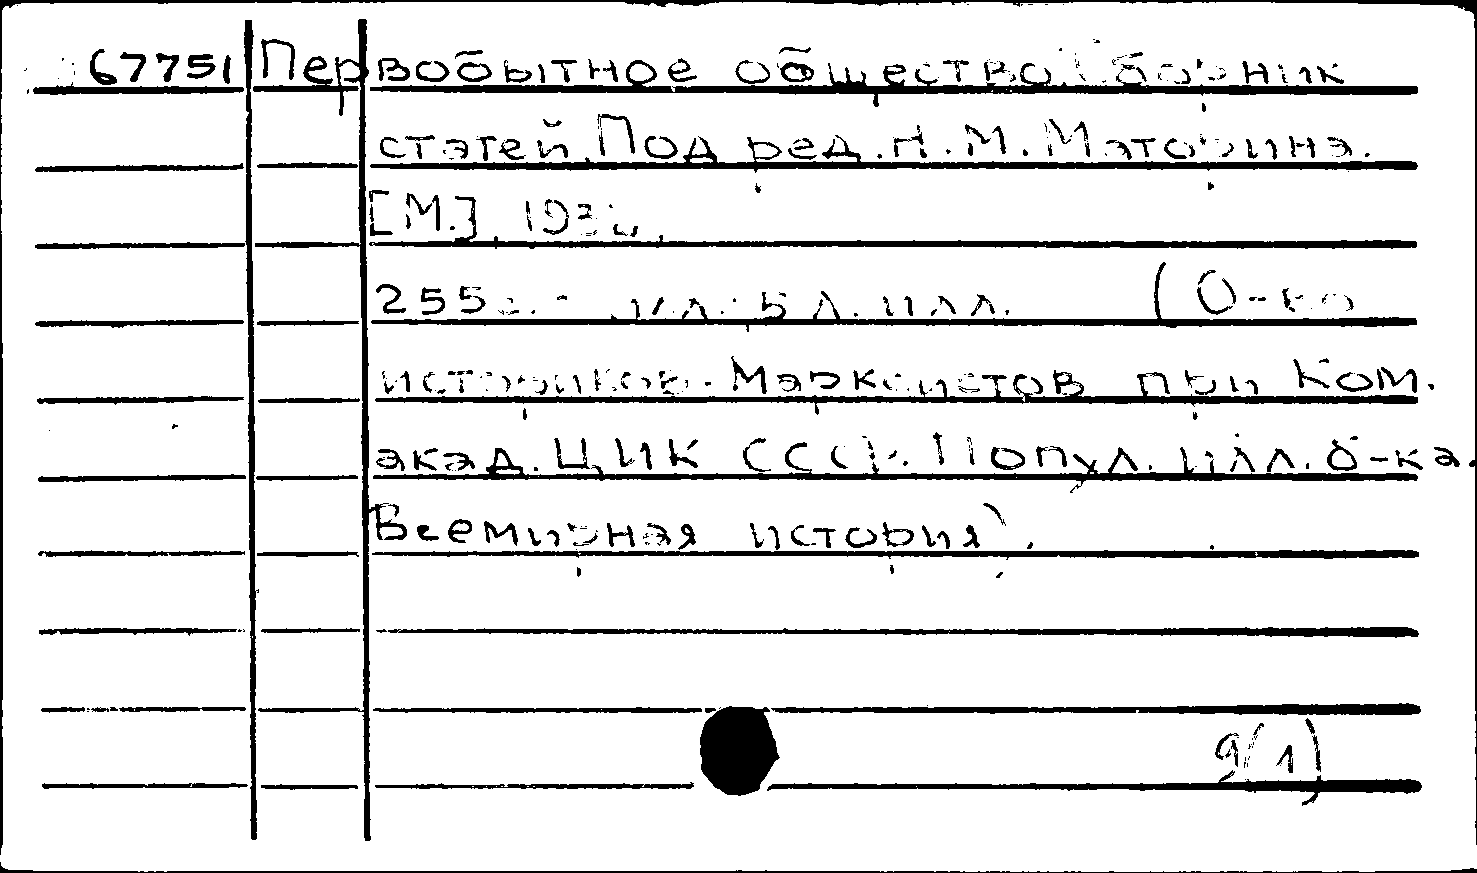 67751 Первобытное общество. Сборник
статей. Под ред. Н. М. Маторина.
[М.],
255 с. с илл.; 5 л. илл. (О-во
историков-марксистов при Ком.
акад. ЦИК СССР. Попул. илл. б-ка.
Всемирная история).
9(1)